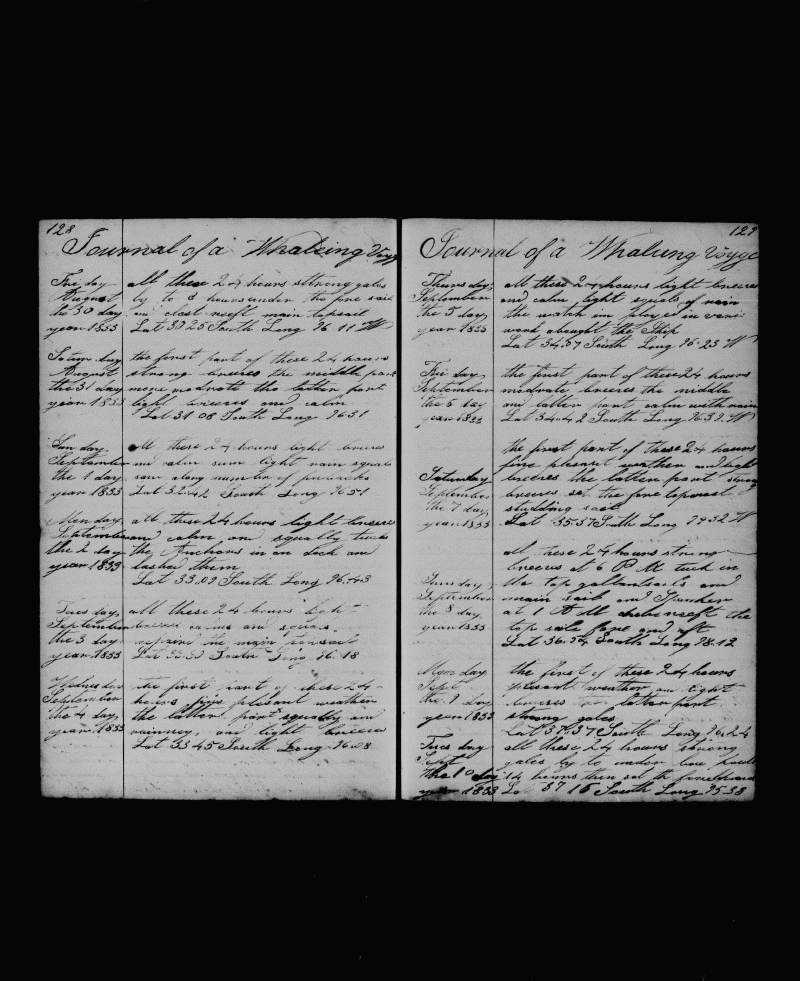 128
Journal of a Whaleing Voyg
Fri day all these 24 hours sttrong gales
August by to 8 hours under the fore sail
the 30 day and close reeft main topsail
year 1833 Lat 30 25 South Long 96 11 W
Satur day the first part of these 24 hours
August strong breezes the middle part
the 31 day more moderate the latter part
year 1833 light breezes and calm
Lat 31 08 South Long 96 31
Sun day all these 24 hours light breezes
September and calm sum light rain squals
the 1 day saw along number of
year 1833 Lat 32 42 South Long 96 51
Mon day all these 24 hours light breezes
September and calm and squally tuck
the 2 day the Anchors in on deck and
year 1833 lashed them
Lat 33.09 South Long 96.43
Tues day all these 24 hours light
September breezes calms and squals
the 3 day repaird the main topsail
year 1833 Lat South Long 96 18
Wednes day the first part of these 24
September hours fine plesant weather
the 4 day the latter part squally and
year 1833 rainney, and light breezes
Lat 33 45 South Long 96.08
129
Journal of a Whaleing Voyge
Thurs day all these 24 hours light breezes
September and calm light squals of rain
the 5 day the watch in ployed in vari
year 1833 work abought the Ship
Lat 34.37 South Long 96.23 W
Fri day the first part of these 24 hours
September modrate breezes the middle
the 6 day and latter part calm with rain
year 1833 Lat 34.42 South Long 96 39. W
the first part of these 24 hours
fine plesant weather and light
Saturday breezes the latter part strong
September breezes set the fore topmost
the 7 day studding sail
year 1833 Lat 35 37 South Long 97 32 W
all these 24 hours strong
breezes at 6 P M tuck in
Sun day the top gallantsails and
September main sail and Spanker
the 8 day at 1 A M reeft the
year 1833 top sails fore and aft
Lat 36.54 South Long 98.12
Mon day the first of these 24 hours
Sept plesant weather and light
the 9 day breezes the latter part
year 1833 strong gales
Lat 37.37 South Long 96.24
Tues day all these 24 hours strong
Sept gales by to under
the 10 day 14 hours then set the
year 1833 Lat 37 16 South Long 95 38